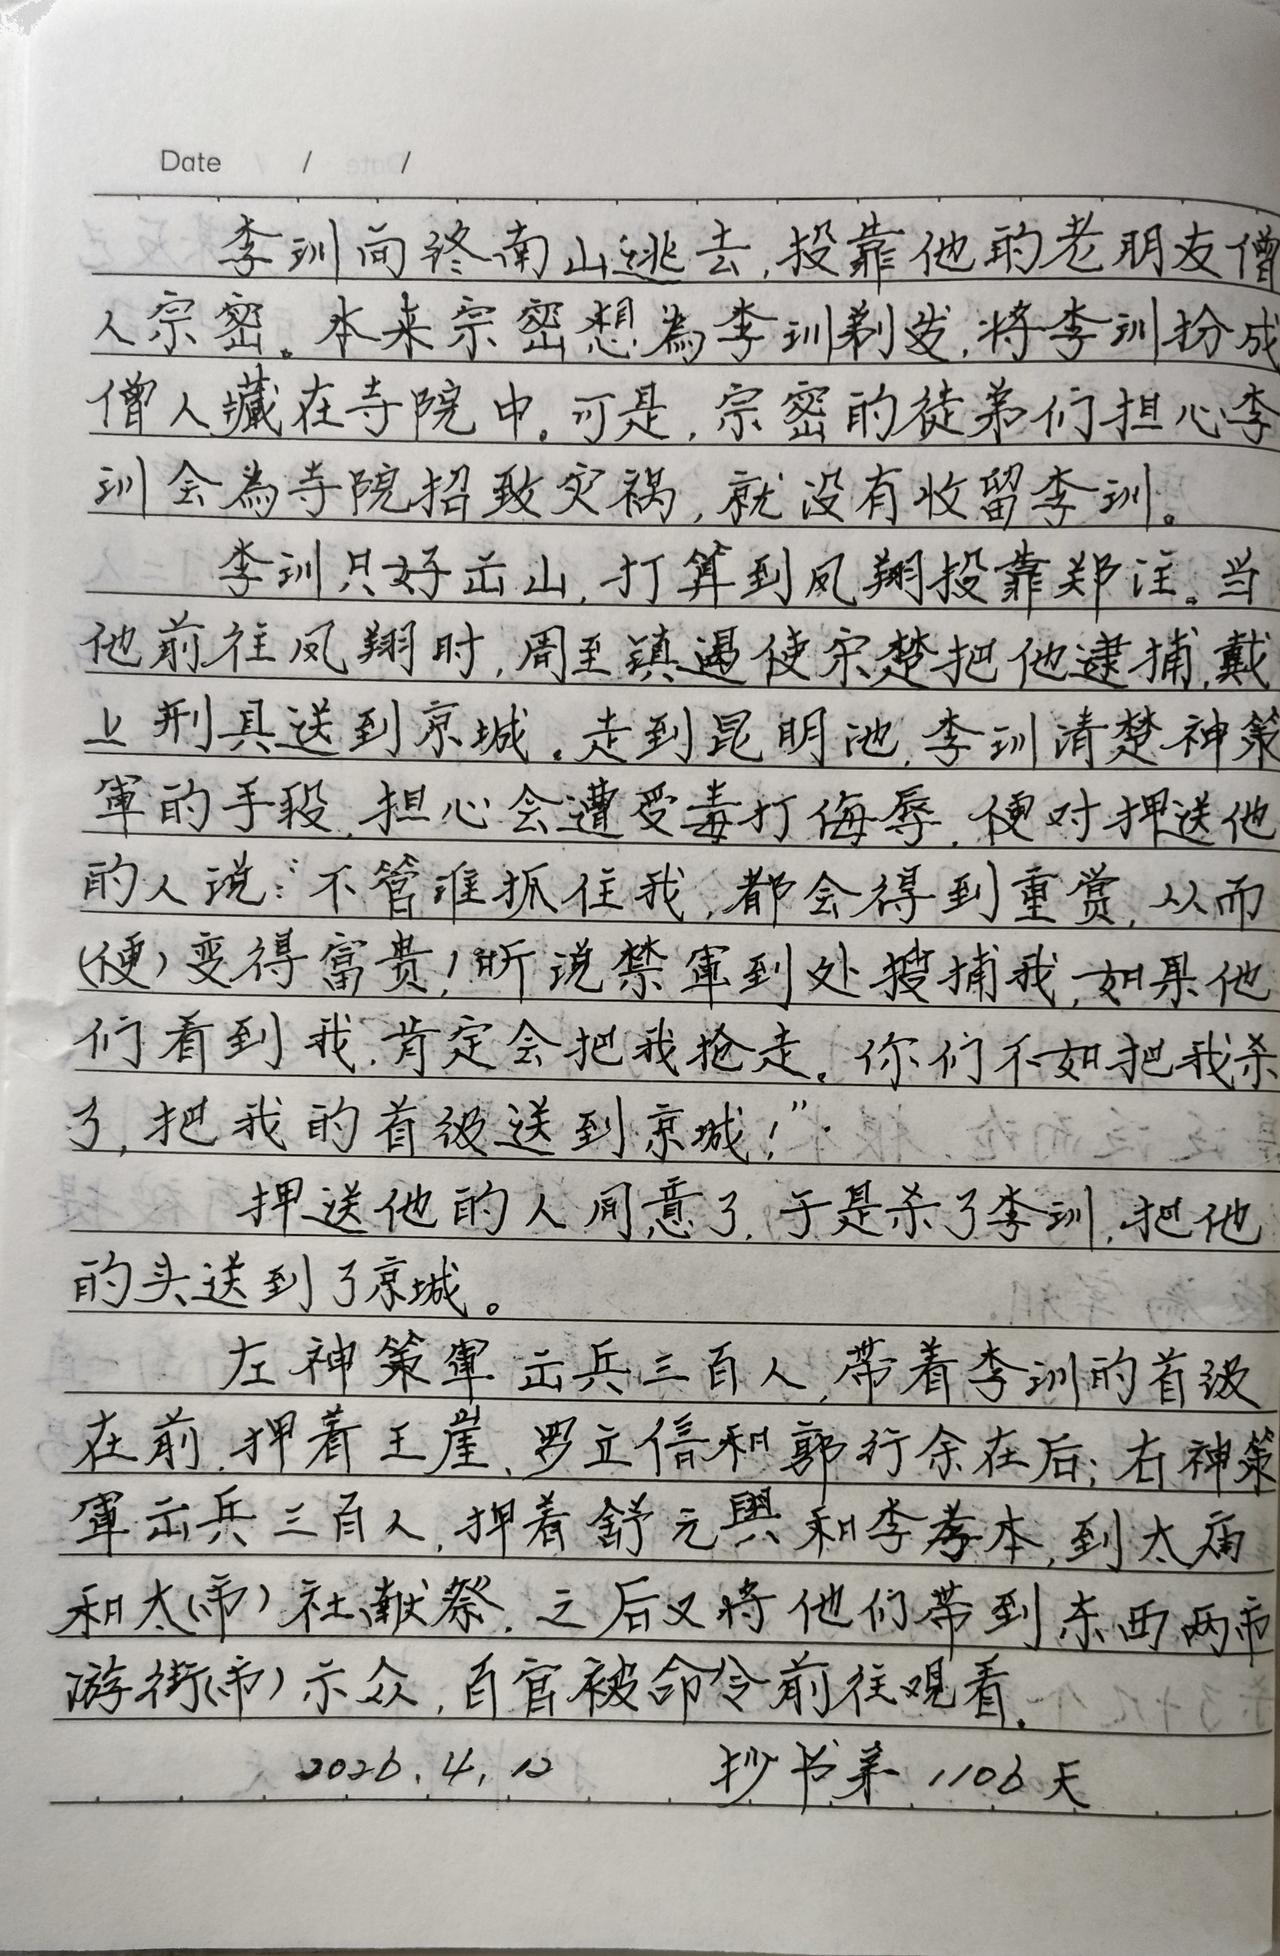 Date / /
李训向终南山逃去,投靠他的老朋友僧
人宗密。本来宗密想為李训剃发,将李训扮成
僧人藏在寺院中。可是,宗密的徒弟们担心李
训会為寺院招致灾祸,就没有收留李训。
李训只好出山,打算到凤翔投靠郑注。当
他前往凤翔时,周至镇遏使宋楚把他逮捕,戴
上刑具送到京城。走到昆明池,李训清楚神策
軍的手段,担心会遭受毒打侮辱,便对押送他
的人说:“不管谁抓住我,都会得到重赏,从而
(便)变得富贵!听说禁軍到处搜捕我,如果他
们看到我,肯定会把我抢走。你们不如把我杀
了,把我的首级送到京城!”
押送他的人同意了,于是杀了李训,把他
的头送到了京城。
左神策軍出兵三百人,带着李训的首级
在前,押着王崖、罗立信和郭行余在后;右神策
軍出兵三百人,押着舒元興和李孝本,到太庙
和太(市)社献祭。之后又将他们带到东西两市
游街(市)示众,百官被命令前往观看。
2026.4.12 抄书第1106天